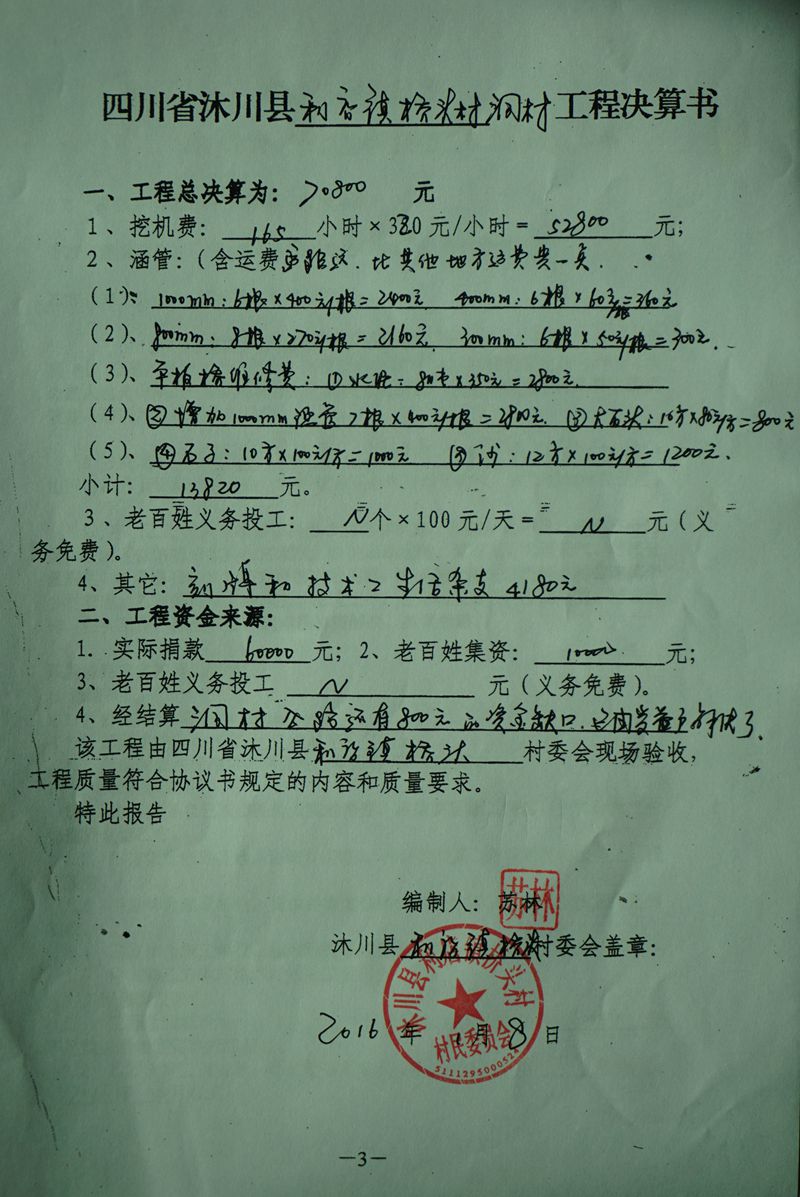 四川省沐川县利店镇桥头村涧村工程决算书
一、工程总决算为：70800 元
1、挖机费：165小时×320元/小时＝52800元；
2、涵管：（含运费，比其他地方运费贵一点．
（1）：1000mm：6根×400元/根＝2400元 400mm：6根×60元/根＝360元
（2）、800mm：8根×270元/根＝2160元． 300mm：6根×50元/根＝300元．
（3）、维修费：①水泥：8吨×350元＝2800元．
（4）、②增加1000mm涵管7根×400元/根＝2800元． ③大石头：10方×80元/方＝800元
（5）、④石子：10方×100元/方＝1000元 ⑤沙：12方×100元/方＝1200元．
小计：13820元。
3、老百姓义务投工：N个×100元/天＝N元（义
务免费）。
4、其它：刻碑和技术工生活杂支4180元
二、工程资金来源：
1. 实际捐款60000元；2、老百姓集资：10000元；
3、老百姓义务投工N元（义务免费）。
4、经结算涧村公路还有800元的资金缺口．
该工程由四川省沐川县利店镇桥头村委会现场验收，
工程质量符合协议书规定的内容和质量要求。
特此报告
编制人：苏林
苏林
沐川县利店镇桥头村委会盖章：
沐川县利店镇桥头村
村民委员会
5111295000524
2016年1月8日
—3—